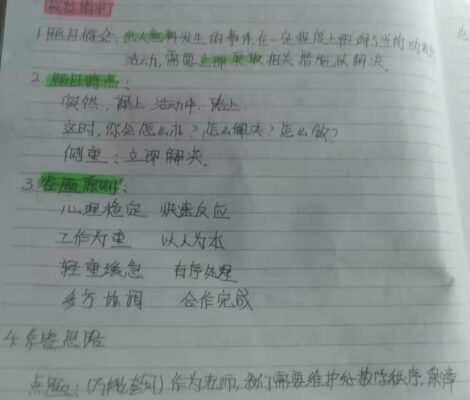 应急情况
1.题目概论:出人意料发生的事件在一定程度上阻碍了当前的
活动,需要立即采取相关措施以解决.
2.题目特点:
突然,课上 活动中、路上....
这时,你会怎么办?怎么解决?怎么做?
侧重:立即解决.
3.答题原则:
心理稳定 快速反应
工作为重 以人为本
轻重缓急 有序处理
多方协调 合作完成
4.作答思路
点题:(万能套句)作为老师,我们需要维护好教学秩序,保障